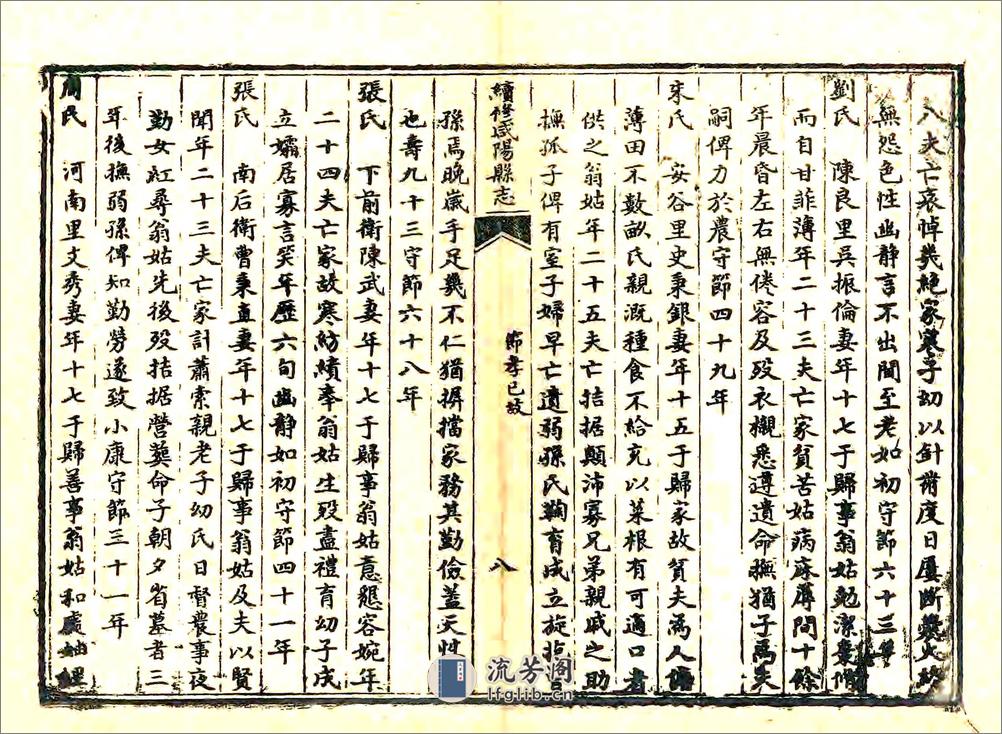 八夫亡哀悼幾絕家寒子幼以針黹度日屢斷爨火
無怨色性幽靜言不出閫至老如初守節六十三年
劉氏 陳良里吳振倫妻年十七于歸事翁姑勉潔羞膳
而自甘菲薄年二十三夫亡家貧苦姑病麻蓐間十餘
年晨昏左右無倦容及歿衣櫬悉遵遺命撫猶子為夫
嗣俾力於農守節四十九年
宋氏 安谷里史秉銀妻年十五于歸家故貧夫為人傭
薄田不數畝氏親溉種食不給充以菜根有可適口者
供之翁姑年二十五夫亡拮据顛沛寡兄弟親戚之助
撫孤子俾有室子婦早亡遺弱孫氏鞠育成立旋抱
續修咸陽縣志
節孝已故
八
孫焉晚歲手足幾不仁猶摒擋家務其勤儉蓋天性
也壽九十三守節六十八年
張氏 下前衛陳武妻年十七于歸事翁姑意懇容婉年
二十四夫亡家故寒紡績奉翁姑生歿盡禮育幼子成
立孀居寡言笑年歷六旬幽靜如初守節四十一年
張氏 南后衛曹秉直妻年十七于歸事翁姑及夫以賢
聞年二十三夫亡家計蕭索親老子幼氏日督農事夜
勤女紅尋翁姑先後歿拮据營葬命子朝夕省墓者三
年後撫弱孫俾知勤勞遂致小康守節三十一年
周氏 河南里文秀妻年十七于歸善事翁姑和處妯娌
流芳阁
lfglib.cn